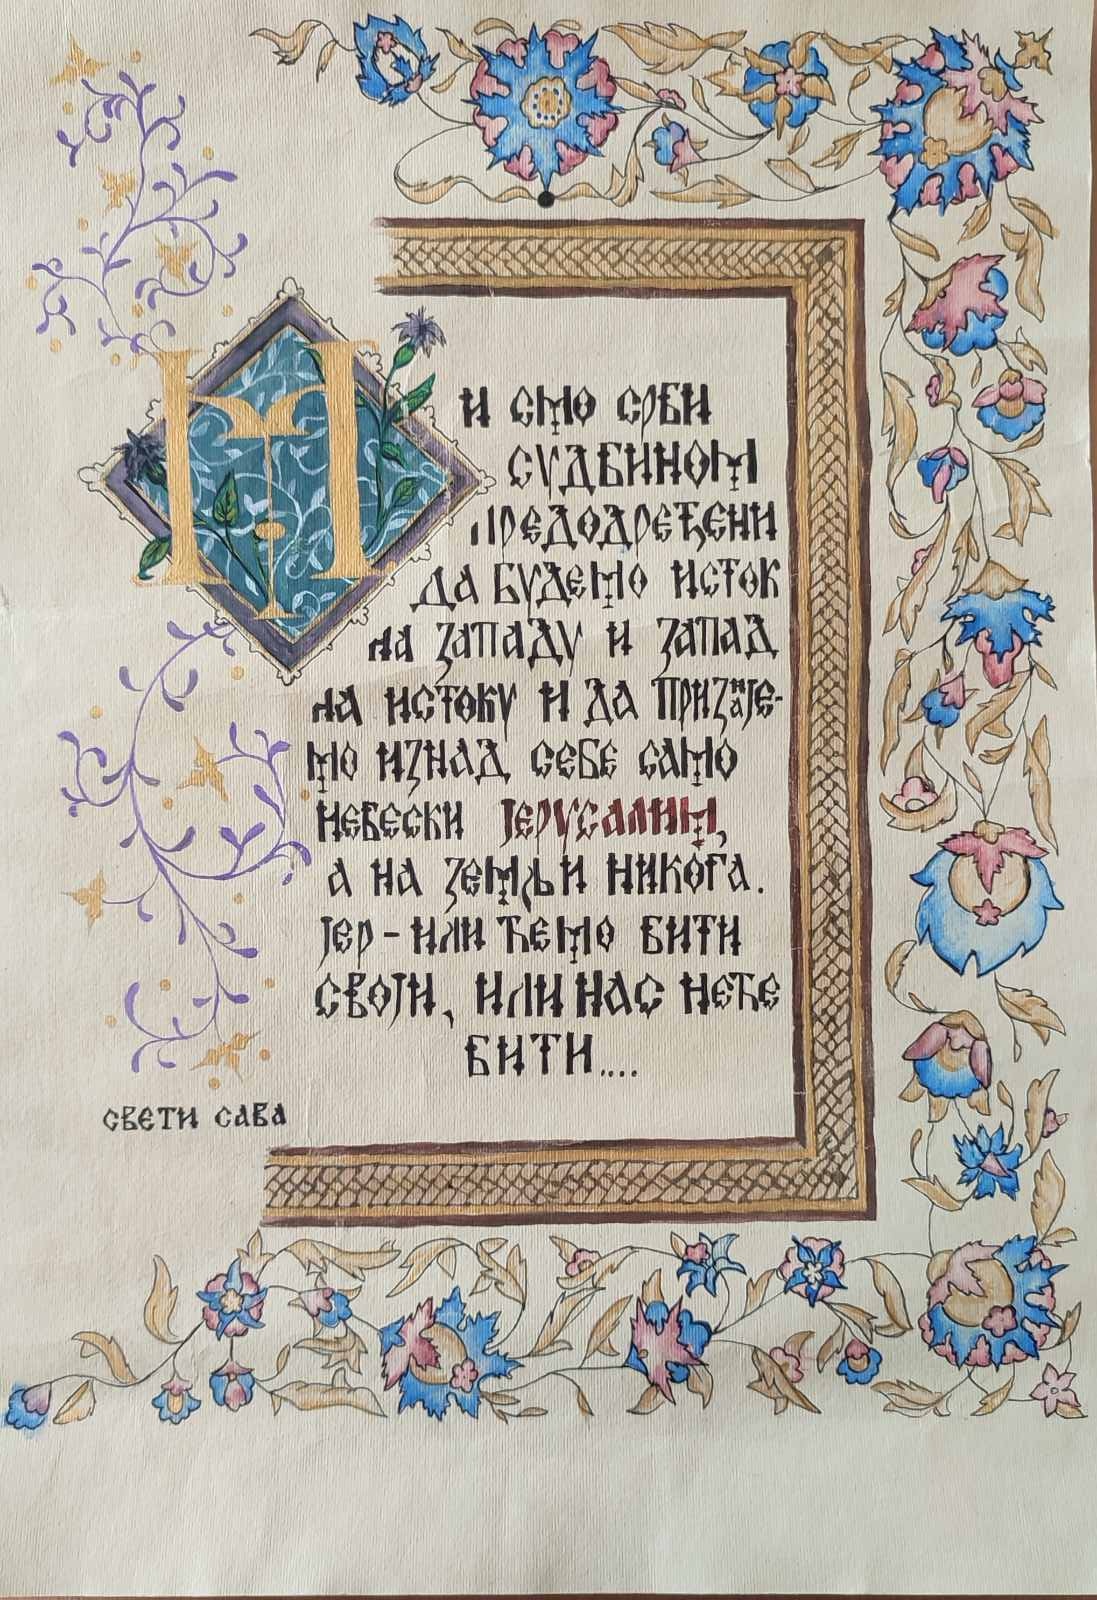 Ми смо Срби
судбином
предодређени
да будемо исток
на западу и запад
на истоку и да признаје-
мо изнад себе само
небески Јерусалим,
а на земљи никога.
Јер - или ћемо бити
своји, или нас неће
бити....
Свети Сава